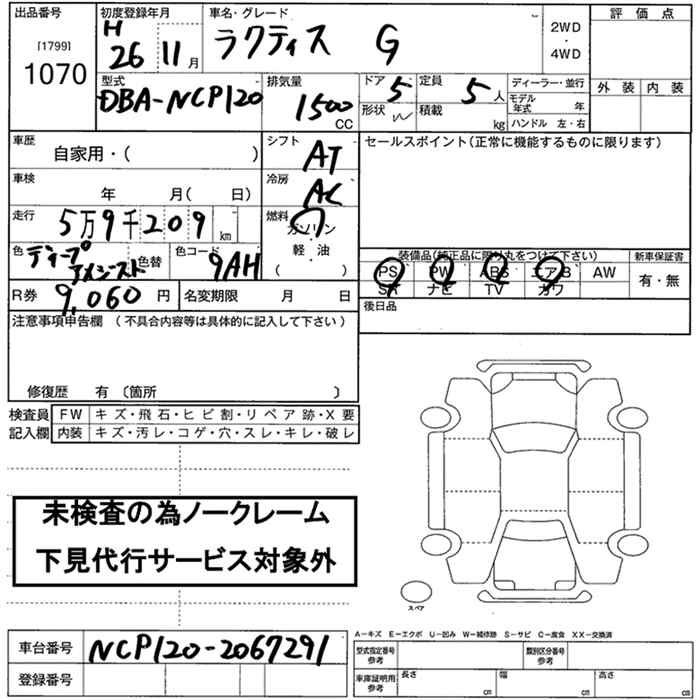 出品番号 初度登録年月 車名・グレード 2WD ・ 4WD 評価点
[1799] H
1070 26 11 月 ラクティス G
外装 内装
型式 排気量 ドア 5 定員 5 人 ディーラー・並行
DBA-NCP120 1500 CC 形状 W 積載 kg モデル年式 年
ハンドル 左・右
車歴 自家用・( ) シフト AT セールスポイント(正常に機能するものに限ります)
車検 年 月( 日) 冷房 AC
走行 5万9千209 km 燃料 ガソリン
軽・油
( )
色 ディープアメシスト 色替 色コード 9AH
装備品(純正品に限り丸をつけて下さい) 新車保証書
PS PW ABS エアB AW 有・無
SR ナビ TV カワ
R券 9,060 円 名変期限 月 日
後日品
注意事項申告欄 (不具合内容等は具体的に記入して下さい)
修復歴 有 〔箇所 〕
検査員 FW キズ・飛石・ヒビ割・リペア跡・X要
記入欄 内装 キズ・汚レ・コゲ・穴・スレ・キレ・破レ
未検査の為ノークレーム
下見代行サービス対象外
スペア
A-キズ E-エクボ U-凹み W-補修跡 S-サビ C-腐食 XX-交換済
車台番号 NCP120-2067291
登録番号
型式指定番号 参考 類別区分番号 参考
車庫証明用 参考 長さ cm 幅 cm 高さ cm